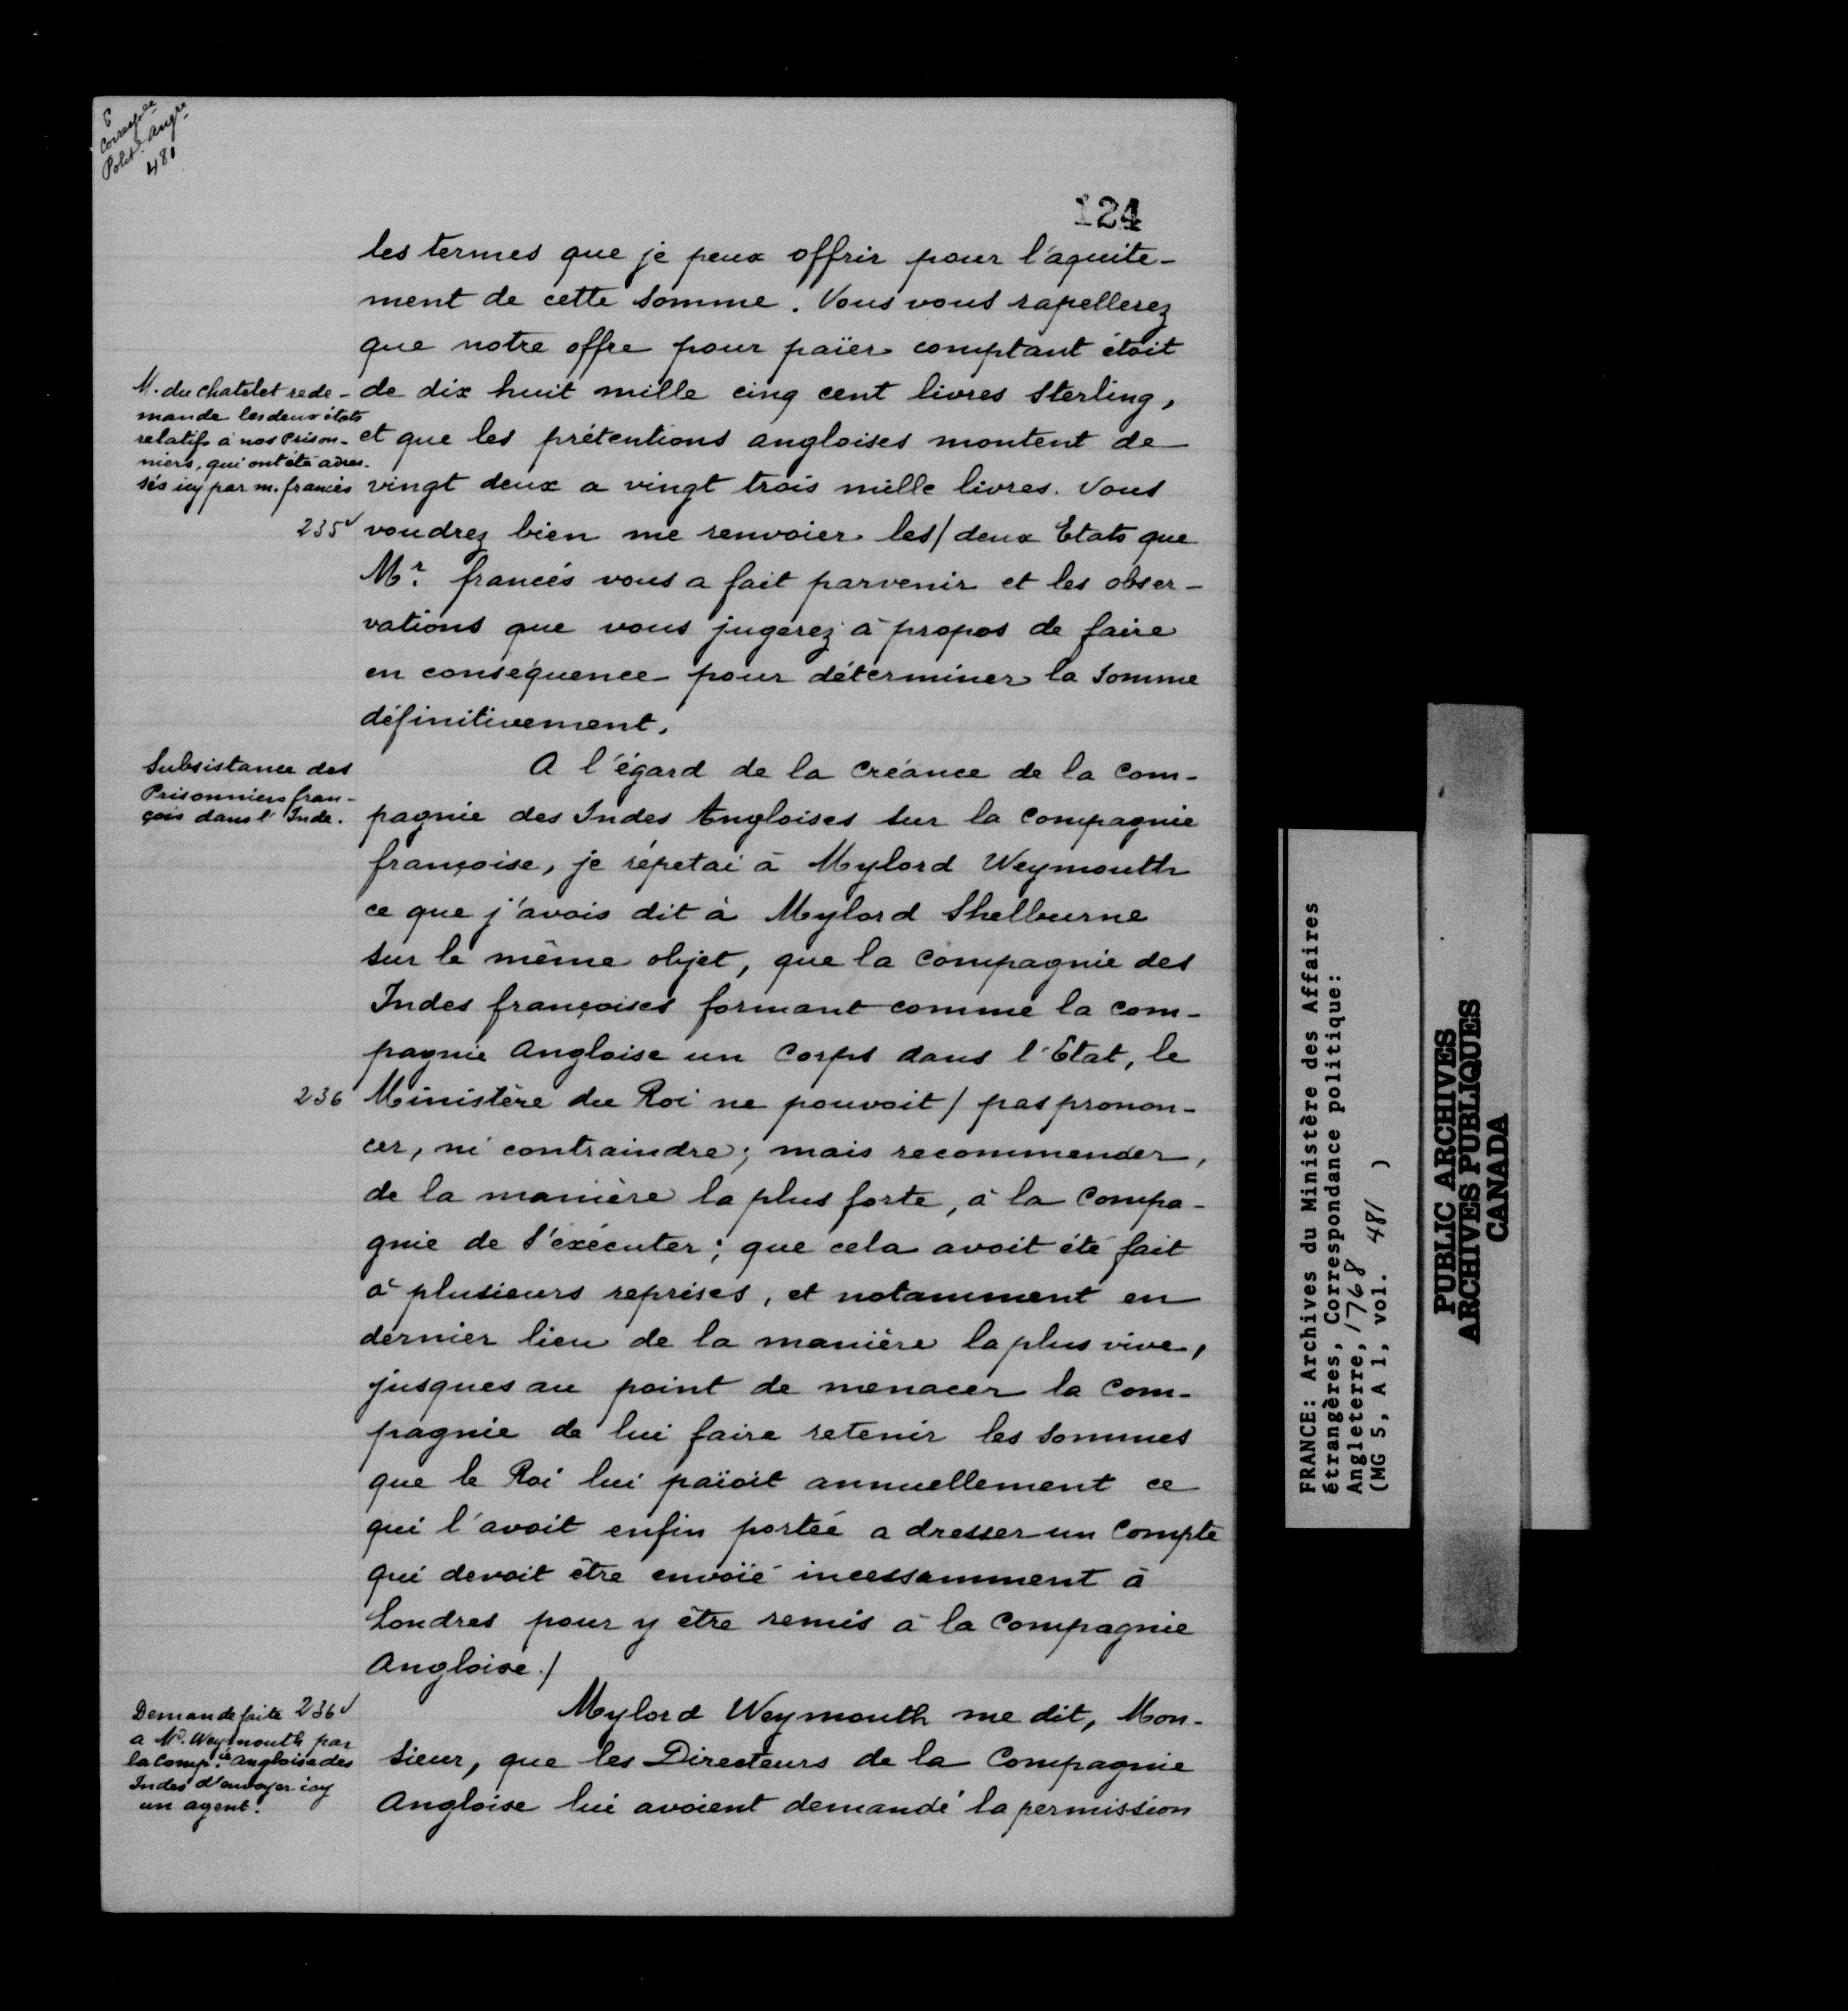 Correspce
Polit. Angre
481
124
les termes que je peux offrir pour l'aquite-
ment de cette somme. Vous vous rapellerez
que notre offre pour païer comptant étoit
de dix huit mille cinq cent livres Sterling,
et que les prétentions angloises montent de
vingt deux a vingt trois mille livres. Vous
voudrez bien me renvoier les/deux Etats que
Mr. francés vous a fait parvenir et les obser-
vations que vous jugerez à propos de faire
en conséquence pour déterminer la Somme
définitivement.
M. du Chatelet rede-
mande les deux états
relatifs à nos Prison-
niers, qui ont été adres-
sés icy par m. francés
235v
A l'égard de la Créance de la Com-
pagnie des Indes Angloises sur la Compagnie
françoise, je répetai à Mylord Weymouth
ce que j'avois dit à Mylord Shelburne
sur le même objet, que la Compagnie des
Indes françoises formant comme la Com-
pagnie Angloise un Corps dans l'Etat, le
Ministère du Roi ne pouvoit/pas pronon-
cer, ni contraindre; mais recommender,
de la manière la plus forte, à la Compa-
gnie de s'exécuter; que cela avoit été fait
à plusieurs reprises, et notamment en
dernier lieu de la manière la plus vive,
jusques au point de menacer la Com-
pagnie de lui faire retenir les sommes
que le Roi lui païoit annuellement ce
qui l'avoit enfin portée a dresser un Compte
qui devoit être envoïé incessamment à
Londres pour y être remis à la Compagnie
Angloise./
Subsistance des
Prisonniers fran-
çois dans l'Inde.
236
Mylord Weymouth me dit, Mon-
sieur, que les Directeurs de la Compagnie
Angloise lui avoient demandé la permission
Demande faite 236v
a Md. Weymouth par
la Compie. Angloise des
Indes d'envoyer icy
un agent.
FRANCE: Archives du Ministère des Affaires
étrangères, Correspondance politique:
Angleterre, 1768
(MG 5, A 1, vol. 481 )
PUBLIC ARCHIVES
ARCHIVES PUBLIQUES
CANADA